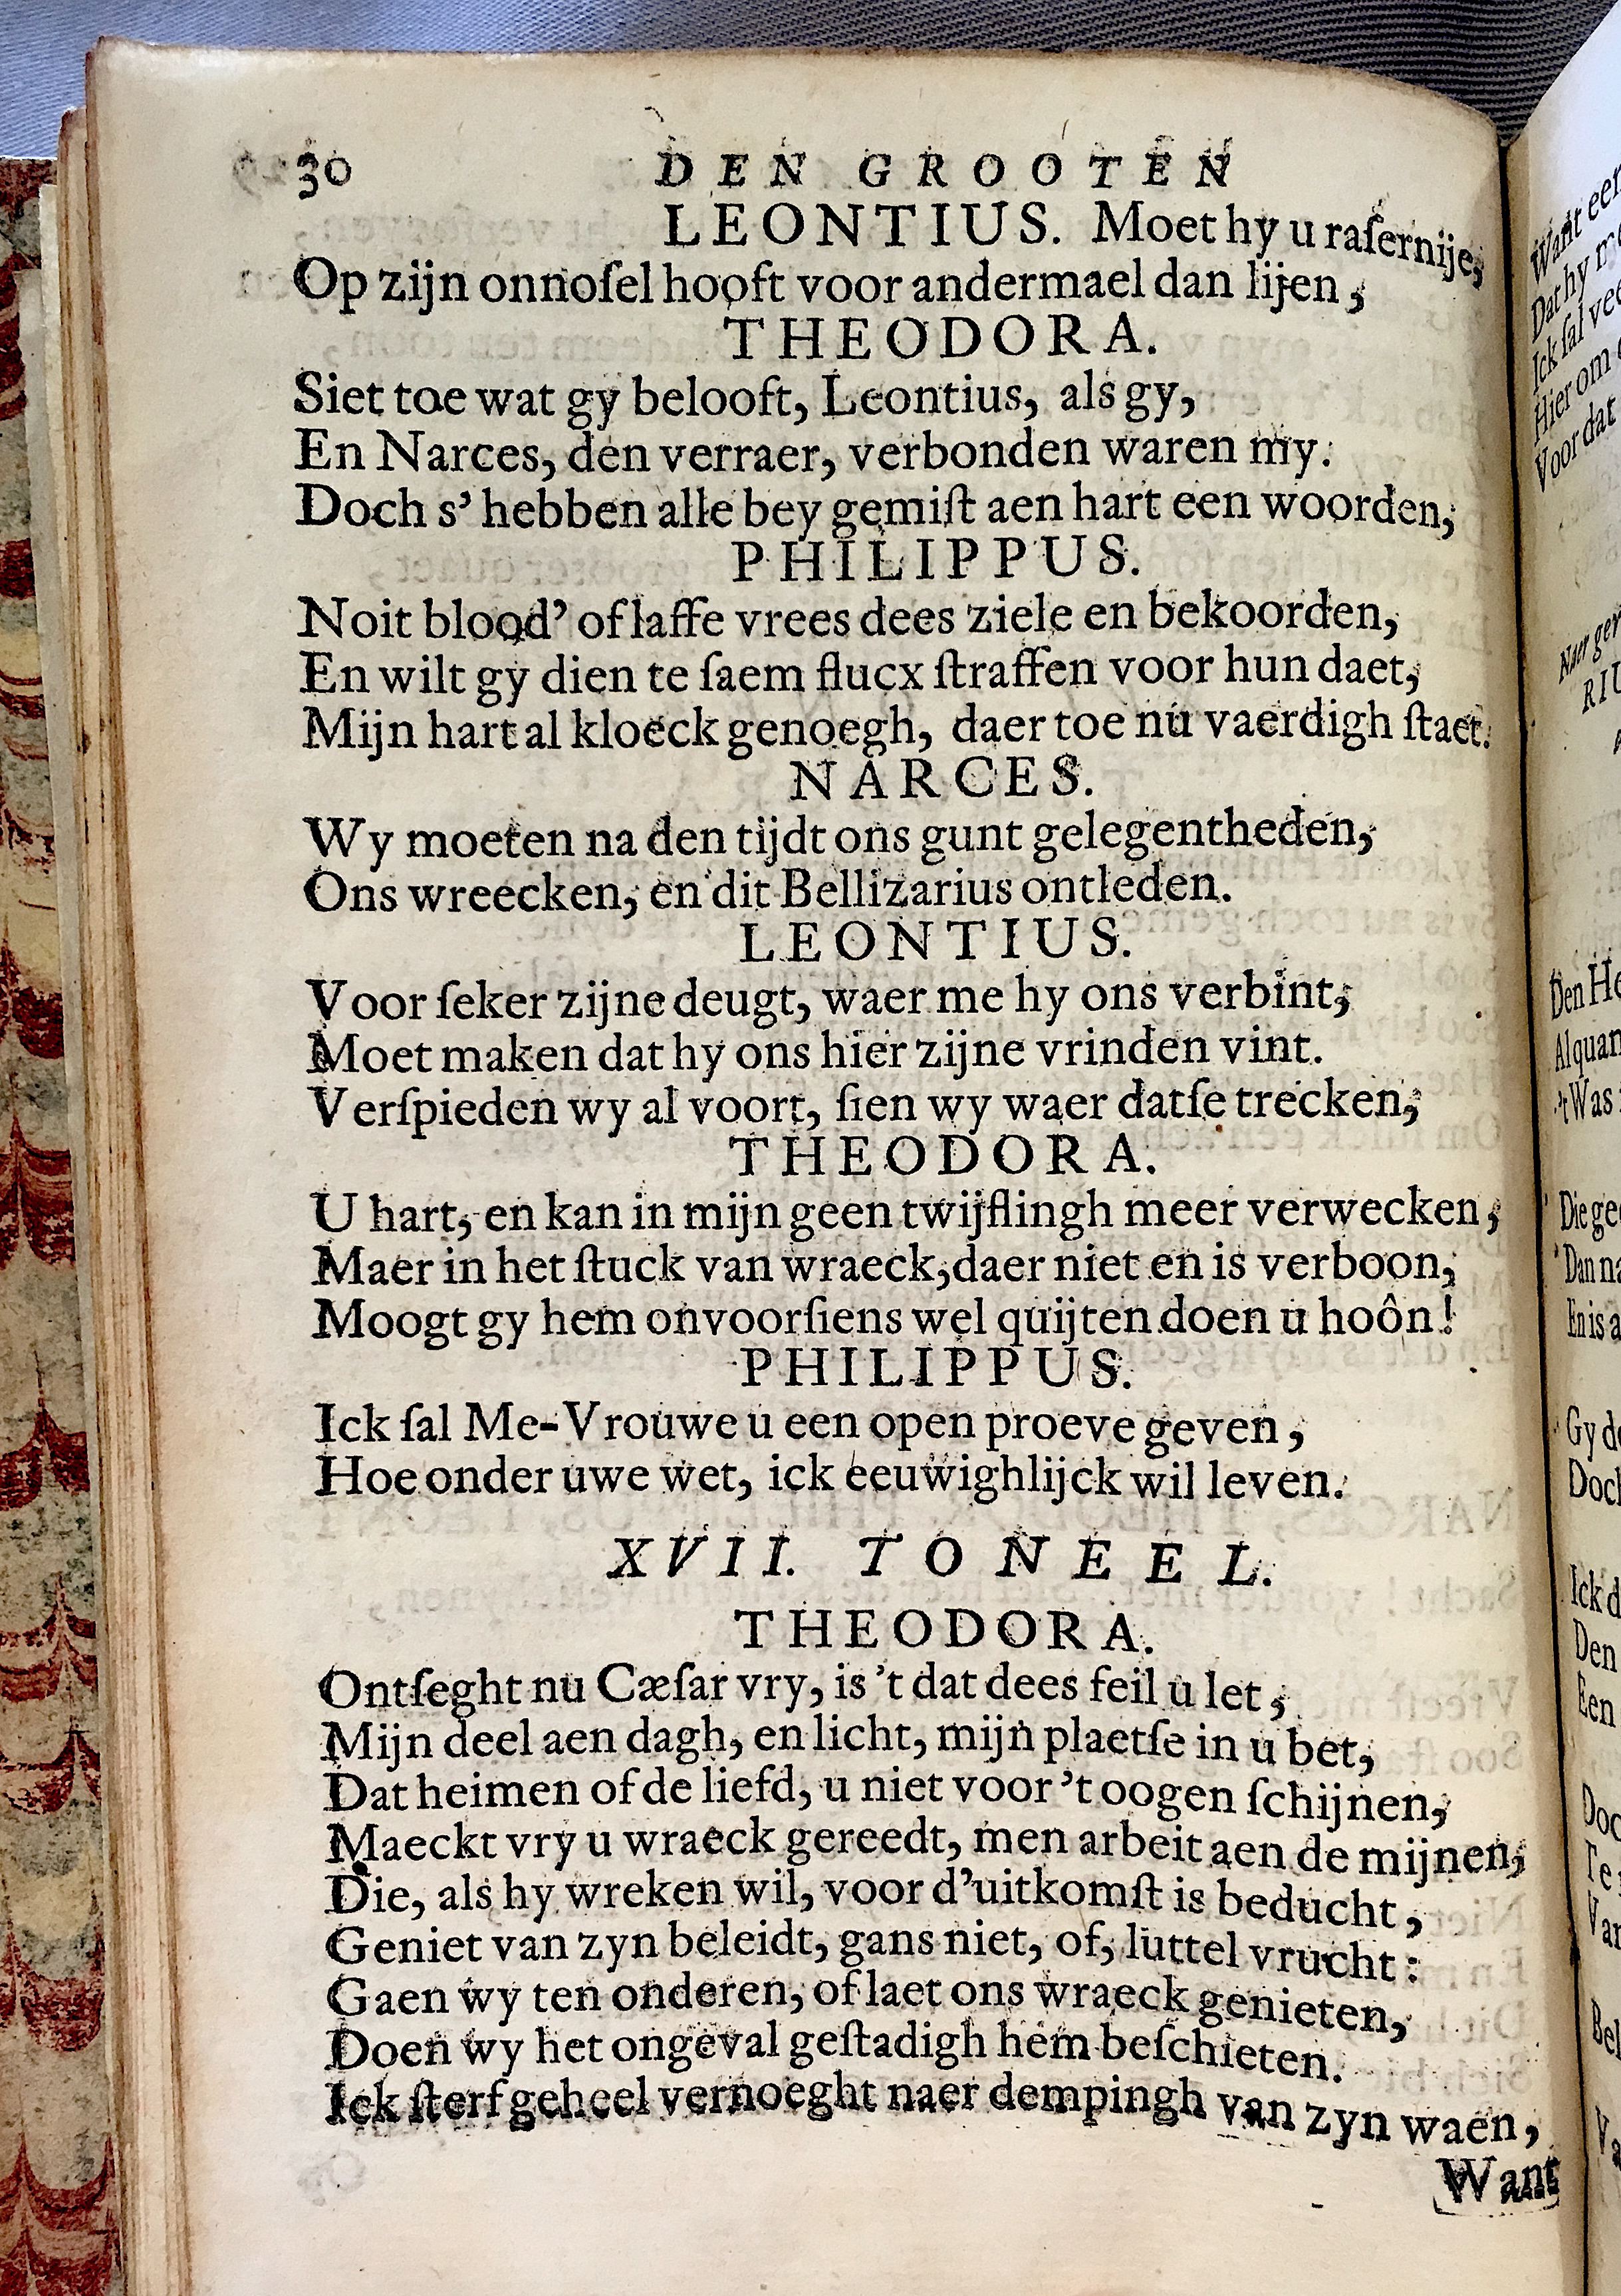 30 DEN GROOTEN
LEONTIUS. Moet hy u raſernije,
Op zijn onnoſel hooft voor andermael dan lijen,
THEODORA.
Siet toe wat gy belooft, Leontius, als gy,
En Narces, den verraer, verbonden waren my.
Doch s' hebben alle bey gemiſt aen hart een woorden,
PHILIPPUS.
Noit blood' of laffe vrees dees ziele en bekoorden,
En wilt gy dien te ſaem flucx ſtraffen voor hun daet,
Mijn hart al kloeck genoegh, daer toe nu vaerdigh ſtaet.
NARCES.
Wy moeten na den tijdt ons gunt gelegentheden,
Ons wreecken, en dit Bellizarius ontleden.
LEONTIUS.
Voor ſeker zijne deugt, waer me hy ons verbint,
Moet maken dat hy ons hier zijne vrinden vint.
Verſpieden wy al voort, ſien wy waer datſe trecken,
THEODORA.
U hart, en kan in mijn geen twijflingh meer verwecken,
Maer in het ſtuck van wraeck, daer niet en is verboon,
Moogt gy hem onvoorſiens wel quijten doen u hoôn!
PHILIPPUS.
Ick ſal Me-Vrouwe u een open proeve geven,
Hoe onder uwe wet, ick eeuwighlijck wil leven.
XVII. TONEEL.
THEODORA.
Ontſeght nu Cæſar vry, is 't dat dees feil u let,
Mijn deel aen dagh, en licht, mijn plaetſe in u bet,
Dat heimen of de liefd, u niet voor 't oogen ſchijnen,
Maeckt vry u wraeck gereedt, men arbeit aen de mijnen,
Die, als hy wreken wil, voor d'uitkomſt is beducht,
Geniet van zyn beleidt, gans niet, of, luttel vrucht:
Gaen wy ten onderen, of laet ons wraeck genieten,
Doen wy het ongeval geſtadigh hem beſchieten.
Ick ſterf geheel vernoeght naer dempingh van zyn waen,
Want
Want
Dat hy
Ick ſal
Hier om
Voor dat
Naer
Den
't Was
Die
Dan
En is
Gy
Doch
Ick
Den
Een